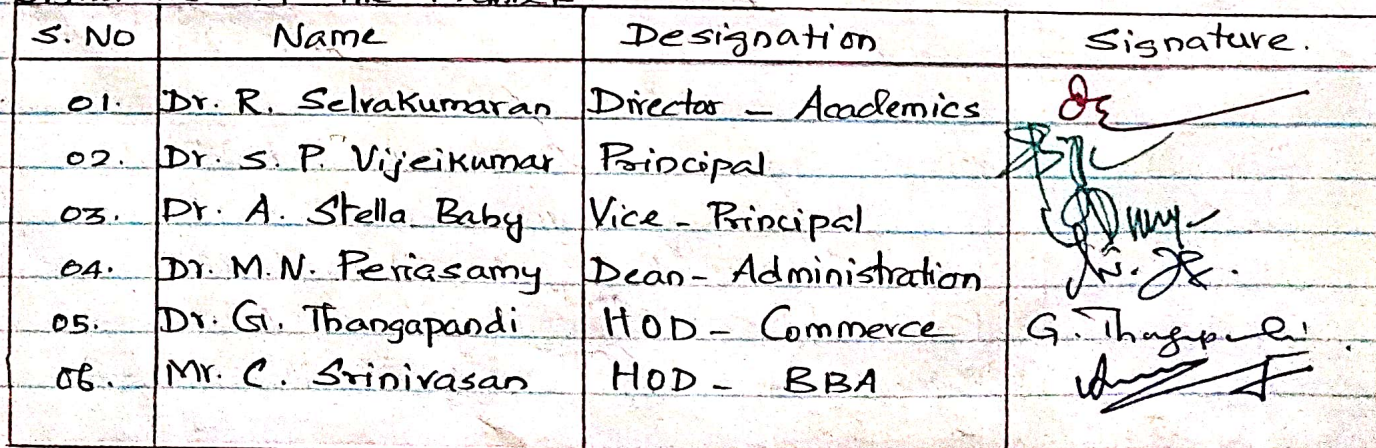 S. No Name Designation Signature.
01. Dr. R. Selvakumaran Director - Academics
02. Dr. S. P. Vijeikumar Principal
03. Dr. A. Stella Baby Vice - Principal
04. Dr. M.N. Periasamy Dean - Administration
05. Dr. G. Thangapandi HOD - Commerce G.
06. Mr. C. Srinivasan HOD - BBA